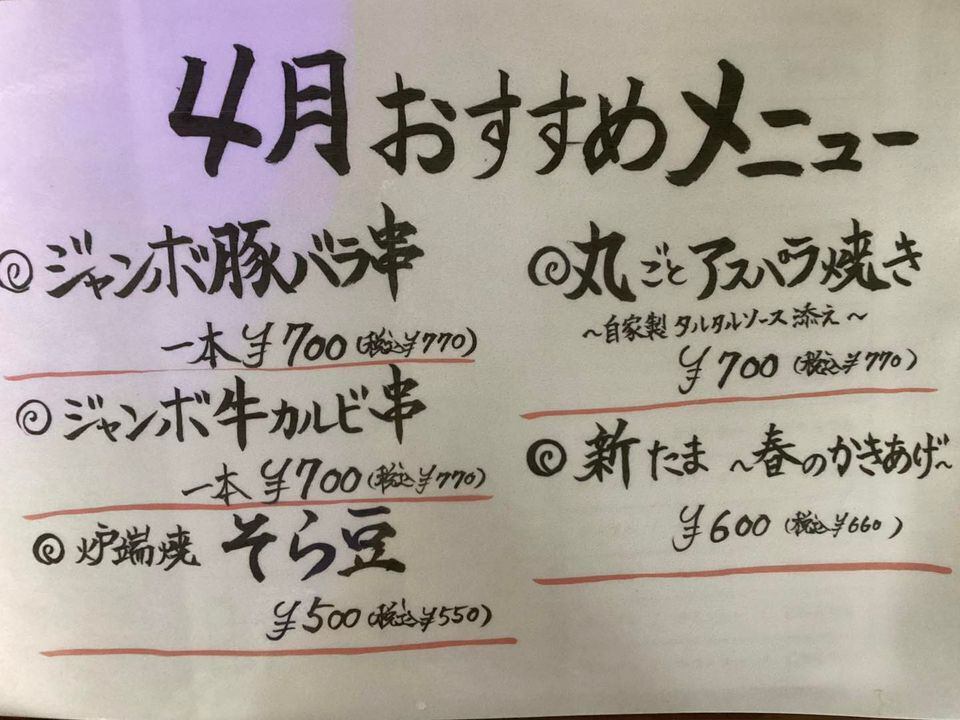 4月おすすめメニュー
ジャンボ豚バラ串
一本 ¥700(税込¥770)
ジャンボ牛カルビ串
一本 ¥700(税込¥770)
炉端焼 そら豆
¥500(税込¥550)
丸ごとアスパラ焼き
~自家製タルタルソース添え~
¥700(税込¥770)
新たま ~春のかきあげ~
¥600(税込¥660)